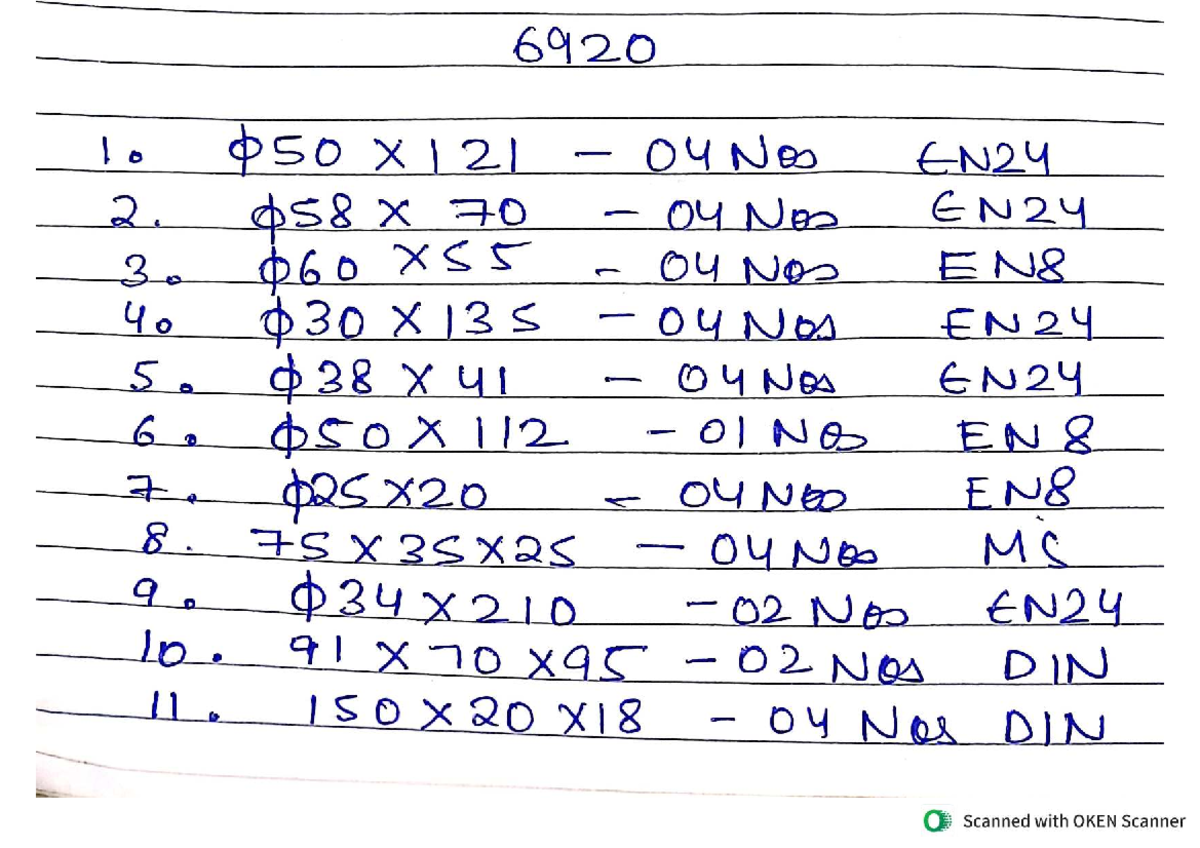 6920
1. ф50 X 121 - 04 Nos EN24
2. ф58 X 70 - 04 Nos EN24
3. ф60 X 55 - 04 Nos EN8
4. ф30 X 135 - 04 Nos EN24
5. ф38 X 41 - 04 Nos EN24
6. ф50 X 112 - 01 Nos EN8
7. ф25 X 20 - 04 Nos EN8
8. 75 X 35 X 25 - 04 Nos MS
9. ф34 X 210 - 02 Nos EN24
10. 91 X 70 X 95 - 02 Nos DIN
11. 150 X 20 X 18 - 04 Nos DIN
Scanned with OKEN Scanner